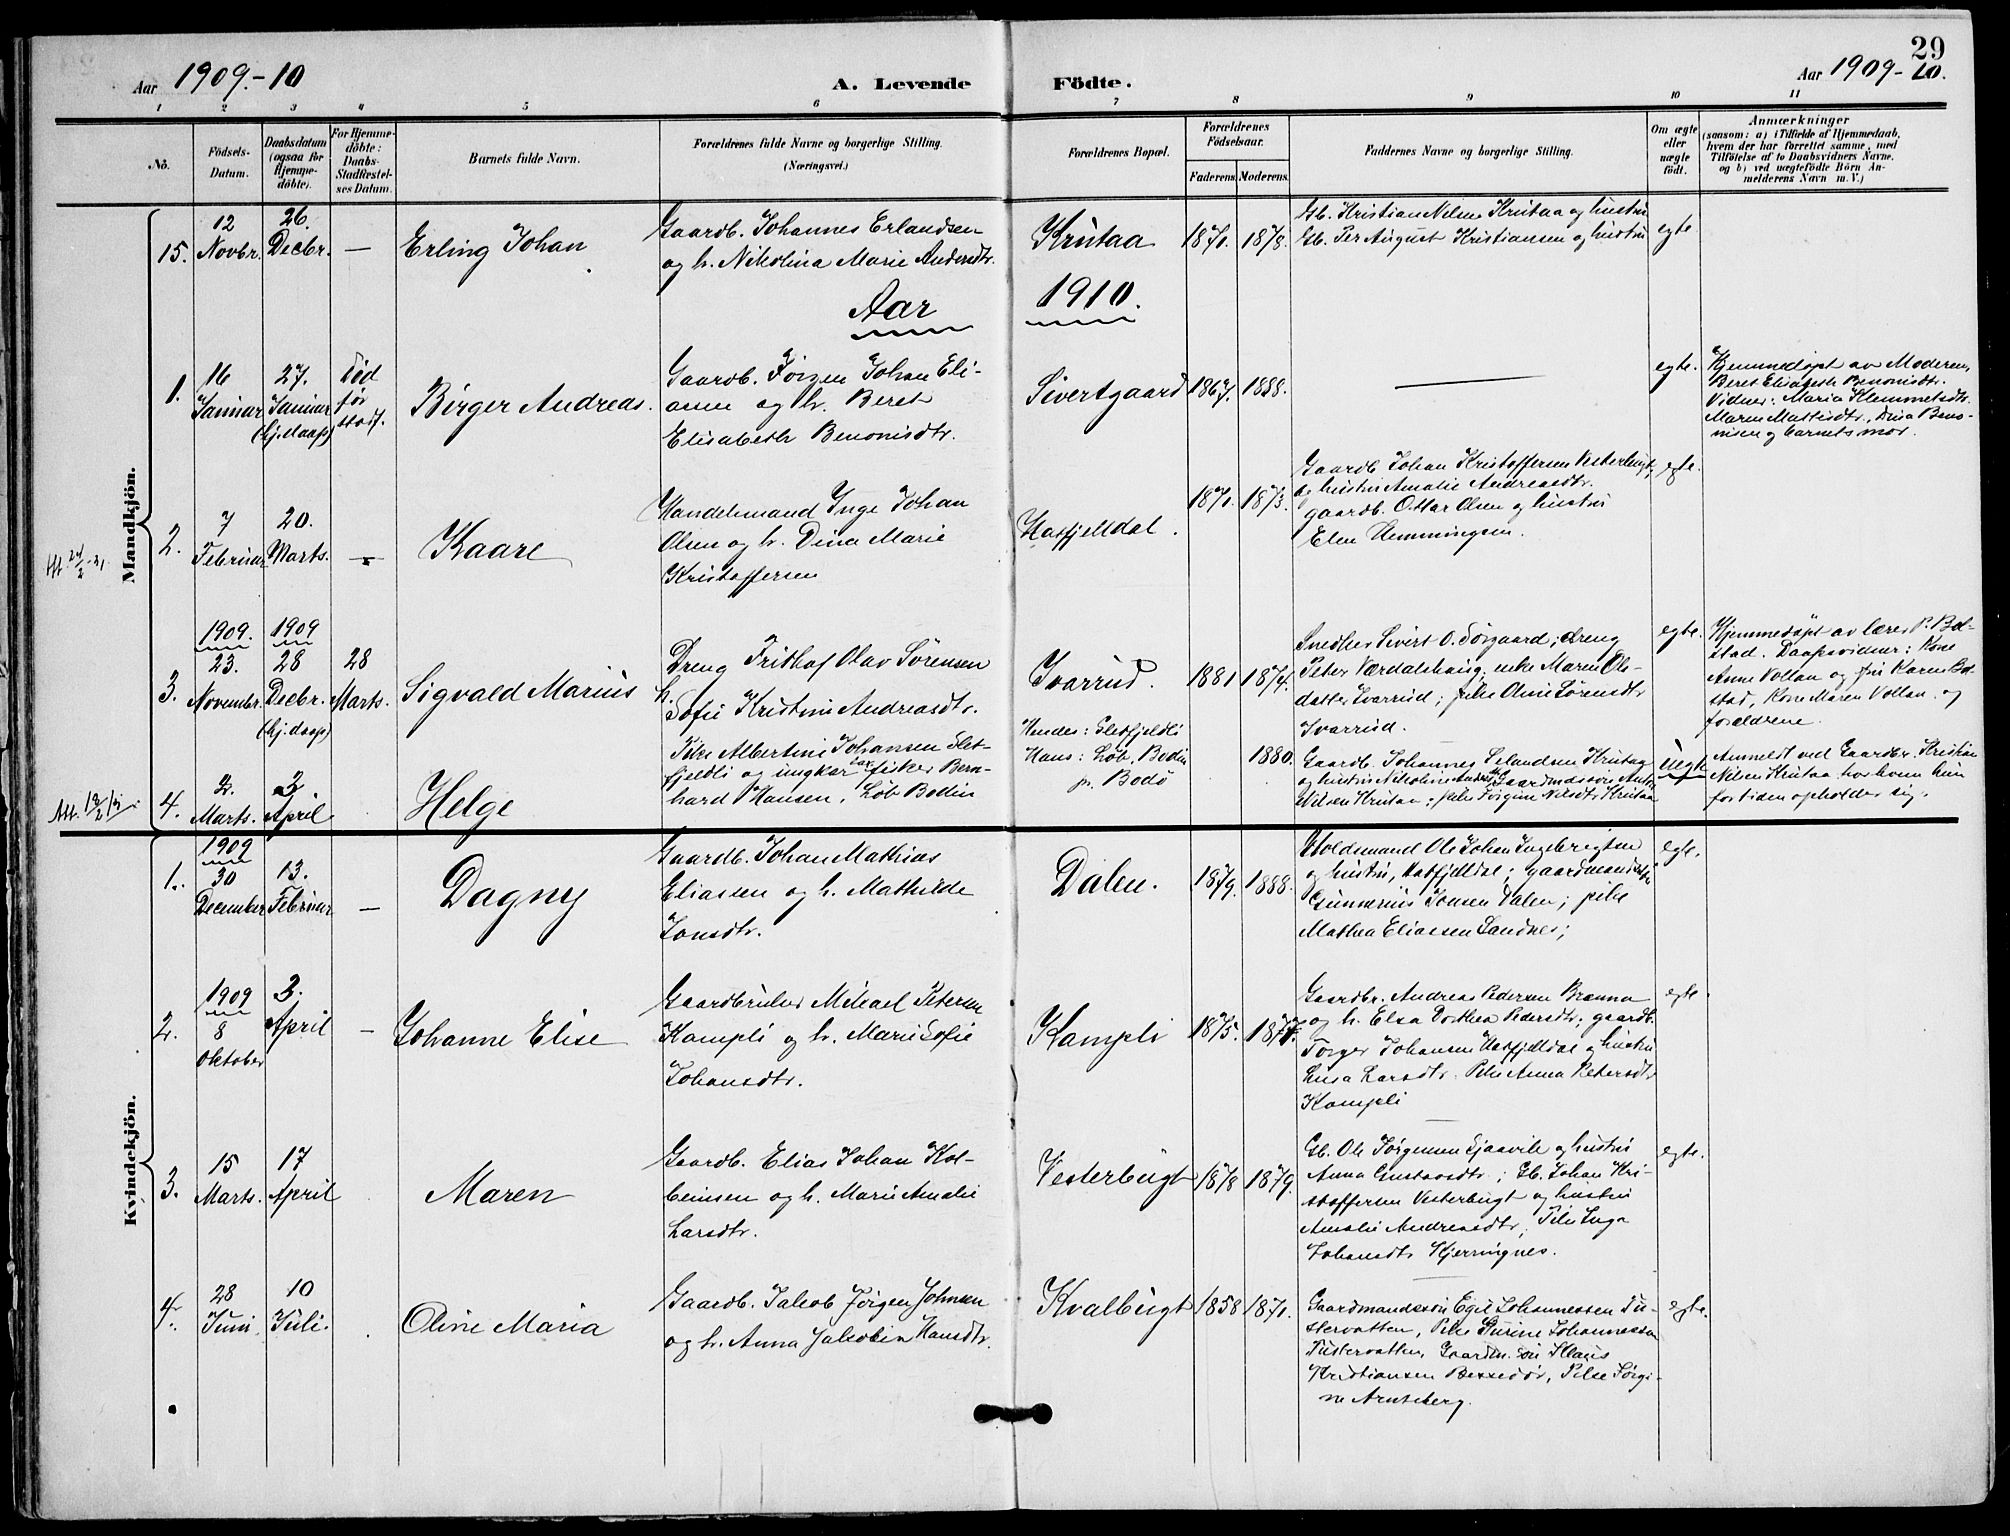 29
Aar 1909.-10
A. Levende
Födte.
Aar 1909-10.
1 2 3 4 5 6 7 8 9 10 11
No.
Födsels-
Datum.
Daabsdatum
(ogsaa for
Hjemme-
döbte).
For Hjemme-
döbte:
Daabs-
Stadfæstel-
ses Datum.
Barnets fulde Navn.
Forældrenes fulde Navne og borgerlige Stilling.
(Næringsvei.)
Forældrenes Bopæl.
Forældrenes
Födselsaar.
Faderens. Moderens.
Faddernes Navne og borgerlige Stilling.
Om ægte
eller
uægte
födt.
Anmærkninger
(saasom: a) i Tilfælde af Hjemmedaab,
hvem der har forrettet samme, med
Tilföielse af to Daabsvidners Navne,
og b) ved uægtefödte Börn An-
melderens Navn m. V.)
Mandkjön.
15.
12
Novbr.
26.
Decbr.
—
Erling Johan
Gaardb. Johannes Erlandsen
og h. Nikolina Marie Andersdtr.
Krutaa
1871. 1878.
Gb. Kristian Nilsen Krutaa og hustru
Gb. Per August Kristiansen og hustru
egte.
Aar
1910.
1.
16
Januar
27.
Januar
(hj.daap)
død
før
stadf.
Birger Andreas.
Gaardb. Jörgen Johan Eli-
asen og h. Beret
Elisabeth Benonisdtr.
Sivertgaard
1867. 1888.
egte.
Hjemmedøpt av Moderen,
Beret Elisabeth Benonisdtr.
Vidner: Maria Klemmetsdtr.
Maren Mattisdtr., Dina Beno-
nisen og barnets mor.
2.
7
Februar
20.
Marts.
—
Kaare
Handelsmand Inge Johan
Olsen og h. Dina Marie
Kristoffersen
Hatfjelldal.
1871. 1873.
Gaardb. Johan Kristoffersen Vesterbugt
og hustru Amalie Andreasdtr.
gaardb. Ottar Olsen og hustru
Elen Hemmingsen.
egte.
3.
1909.
23.
Novembr.
1909
28
Decbr.
(hj.daap)
28
Marts.
Sigvald Marius
Dreng Fridthof Olav Sörensen
h.
Sofie Kristine Andreasdtr.
Ivarrud.
1881 1874.
Snedker Sivert O. Sørgaard; dreng
Peter Værdalshaug, enke Maren Ols-
datter Ivarrud; pike Oline Sörensdtr
Ivarrud.
egte.
Hjemmedøpt av lærer P. Bol-
stad. Daapsvidner: Kone
Anne Vollan og fru Karen Bol-
stad, Kone Maren Vollan, og
forældrene.
4.
2.
Marts.
3.
April
Helge
Pike Albertine Johansen Slet-
fjeldli og ungkar fisker Bern-
hard Hansen, Löb Bodin
Hendes: Sletfjeldli
Hans: Löb, Bodin
pr. Bodö
1880.
Gaardb. Johannes Erlandsen Krutaa
og hustru Nikoline Andersdtr. Gaardmandssøn Anton
Nilsen Krutaa; pike Jørgine Nilsdtr Krutaa
Uegte
Anmeldt ved Gaardbr. Kristian
Nilsen Krutaa hos hvem hun
for tiden opholder sig.
Kvindekjön.
1.
1909
30
December
13.
Februar
—
Dagny
Gaardb. Johan Mathias
Eliassen og h. Mathilde
Jonsdtr.
Dalen.
1879. 1888.
Holdsmand Ole Johan Ingebrigtsen
og hustru, Hatfjelldal; gaardmandssøn
Gunnerius Jonsen Dalen; pike
Mathea Eliassen Sandnes;
egte.
2.
1909
8
Oktober
3.
April
—
Johanne Elise
Gaardbruker Mikael Petersen
Kampli og h. Marie Sofie
Johansdtr.
Kampli
1875. 1877.
Gaardbr. Andreas Pedersen Brenna
og h. Elsa Dorthea Pedersdtr; gaardb.
Torger Johansen Hatfjelldal og hustru
Lusa Larsdtr. Pike Anna Petersdtr
Kampli
egte.
3.
15
Marts.
17
April
Maren
Gaardb. Elias Johan Kol-
beinsen og h. Marie Amalie
Larsdtr.
Vesterbugt
1878 1879.
Gb. Ole Jörgensen Sjaavik og hustru
Anna Gustavsdtr.; Gb. Johan Kri-
stoffersen Vesterbugt og hustru
Amalie Andreasdtr, Pike Inga
Johansdtr Kjerringnes.
egte.
4.
28
Juni.
10
Juli.
Oline Maria
Gaardb. Jakob Jörgen Johnsen
og h. Anna Jakobine Hansdtr.
Kvalbugt
1858 1871.
Gaardmandssøn Egil Johannessen Tu-
stervatten, Pike Purine Johannessen
Tustervatten, Gaardm. søn Klaus
Kristiansen Bessedør, Pike Jørgi-
ne Arntsberg.
egte.